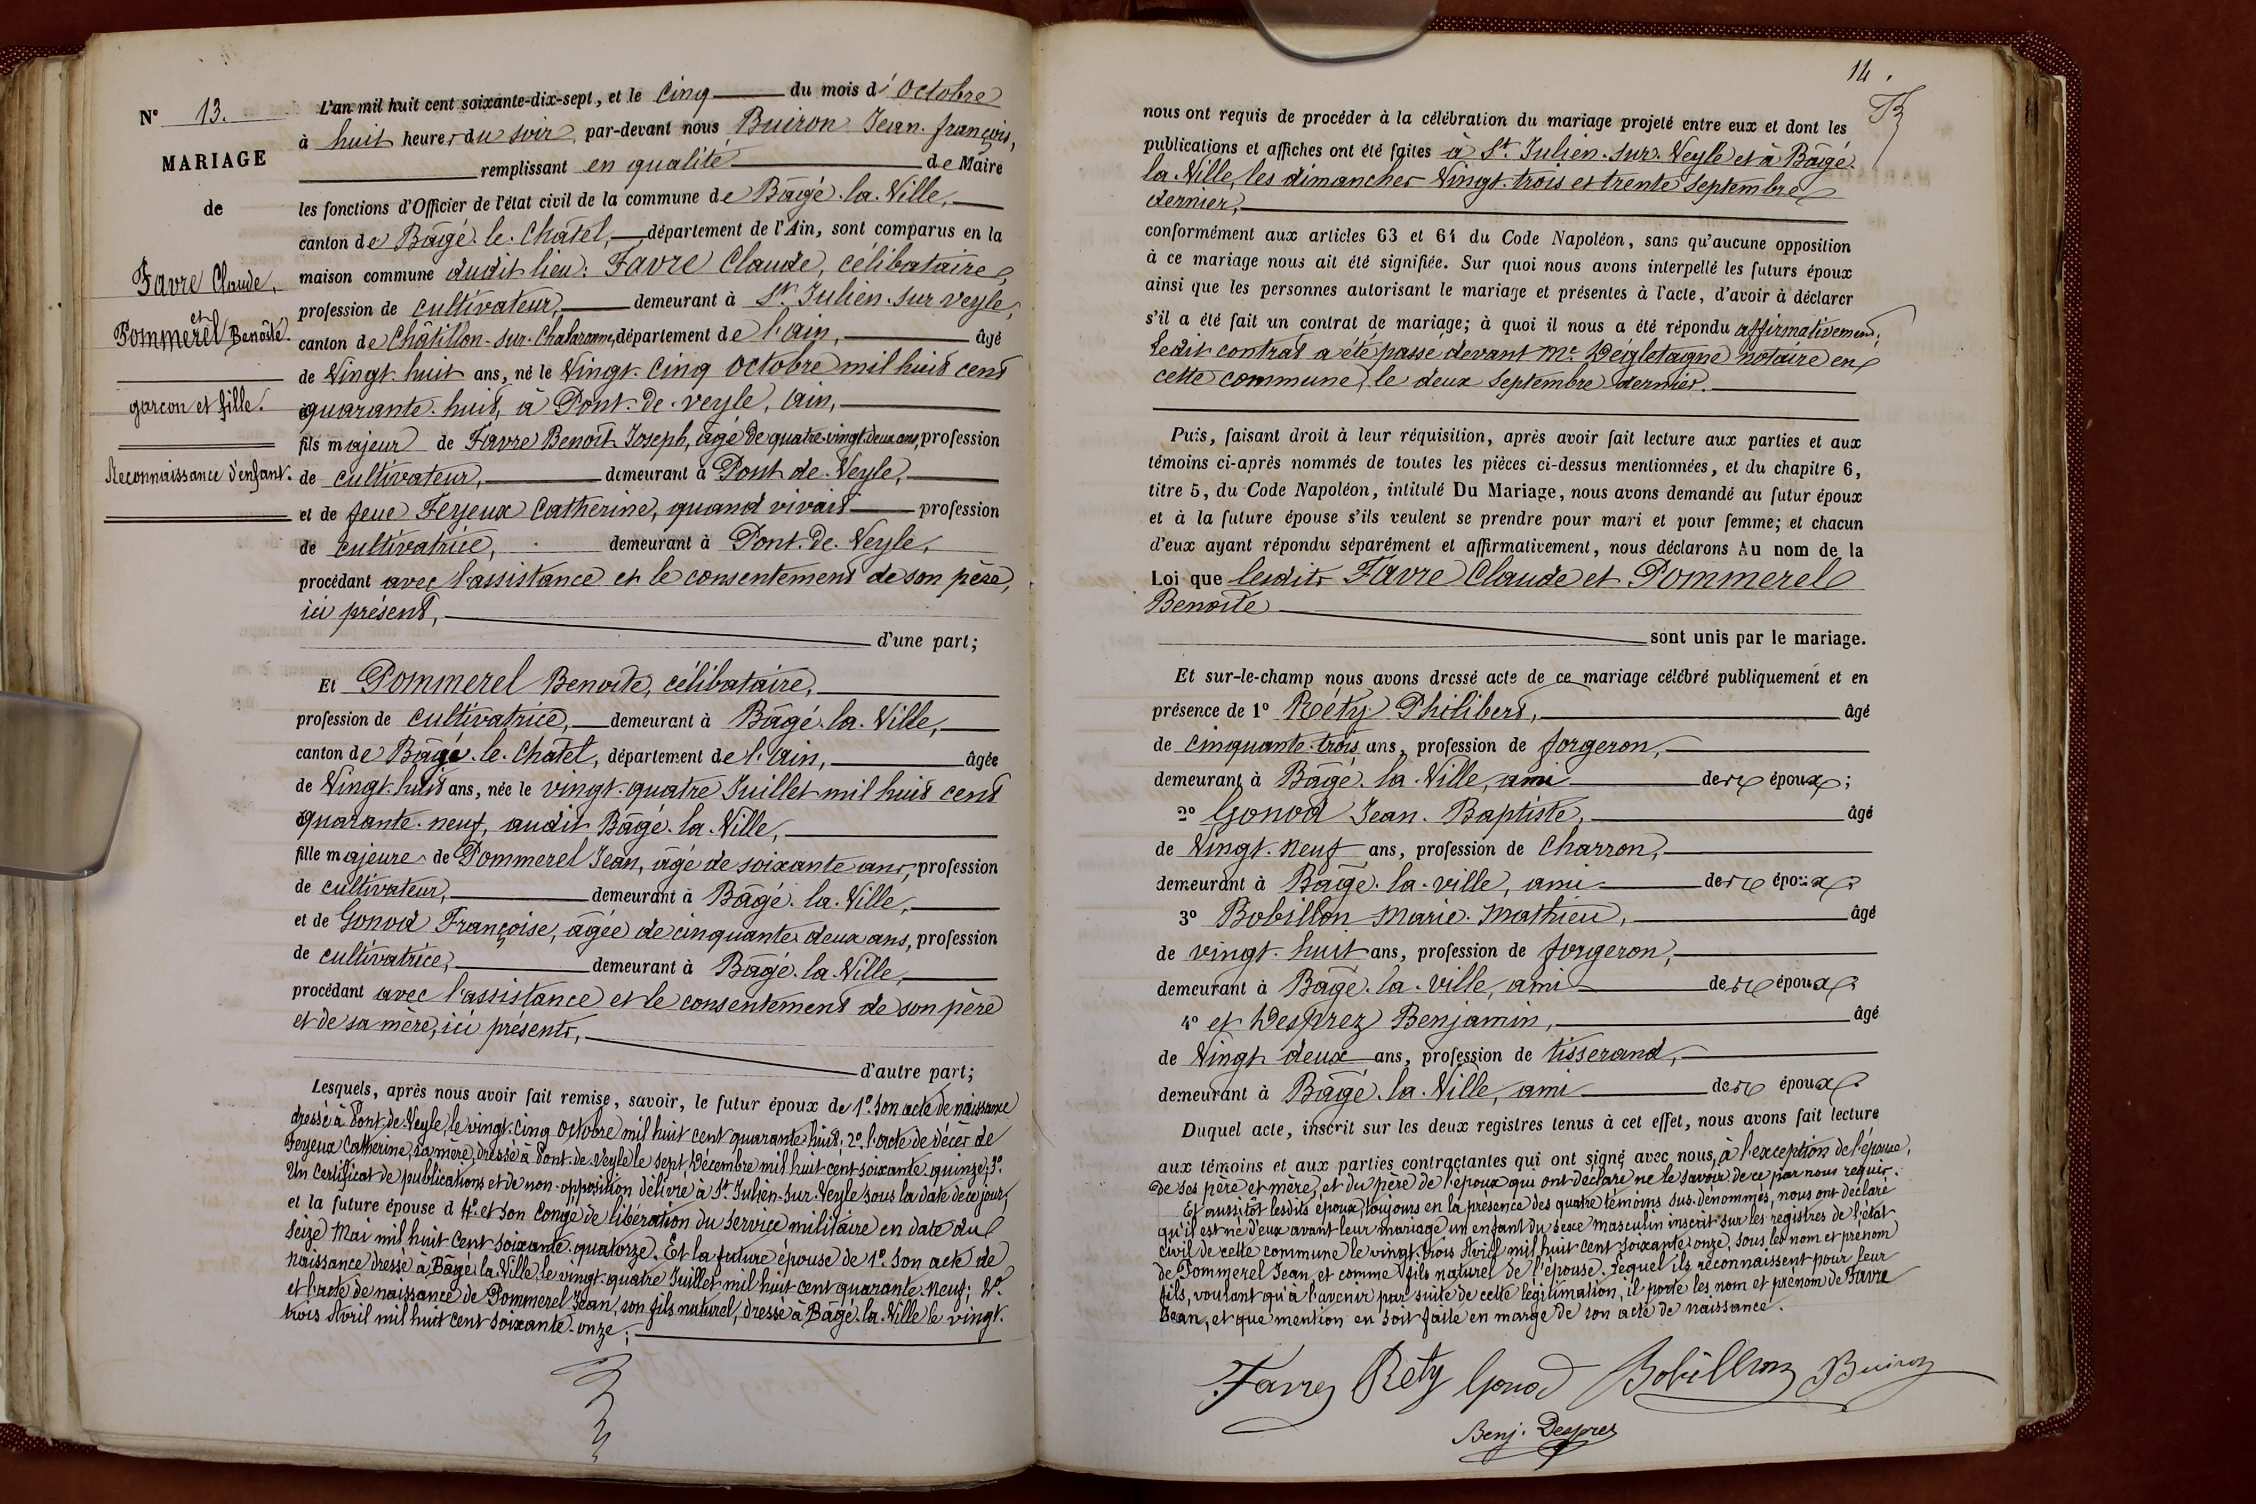 N° 13.
MARIAGE
de
Favre Claude,
et
Pommerel Benoîte.
garçon et fille.
Reconnaissance d'enfant.
L'an mil huit cent soixante-dix-sept, et le Cinq du mois d'Octobre
à huit heures du soir, par-devant nous Buiron Jean-françois,
remplissant en qualité de Maire
les fonctions d'Officier de l'état civil de la commune de Bâgé-la-Ville,
canton de Bâgé-le-Châtel, département de l'Ain, sont comparus en la
maison commune dudit lieu: Favre Claude, célibataire,
profession de cultivateur, demeurant à St Julien-sur-veyle,
canton de Châtillon-sur-Chalaronne, département de l'ain, âgé
de Vingt-huit ans, né le Vingt-Cinq Octobre mil huit cent
quarante-huit, à Pont-de-veyle, Ain,
fils majeur de Favre Benoît Joseph, âgé de quatre-vingt-deux ans, profession
de cultivateur, demeurant à Pont-de-Veyle,
et de feue Feyeux Catherine, quand vivait profession
de cultivatrice, demeurant à Pont-de-Veyle,
procédant avec l'assistance et le consentement de son père,
ici présent,
d'une part;
Et Pommerel Benoîte, célibataire,
profession de cultivatrice, demeurant à Bâgé-la-Ville,
canton de Bâgé-le-Châtel, département de l'Ain, âgée
de Vingt-huit ans, née le vingt-quatre Juillet mil huit cent
quarante-neuf, audit Bâgé-la-Ville,
fille majeure de Pommerel Jean, âgé de soixante ans, profession
de cultivateur, demeurant à Bâgé-la-Ville,
et de Gonod Françoise, âgée de cinquante-deux ans, profession
de cultivatrice, demeurant à Bâgé-la-Ville,
procédant avec l'assistance et le consentement de son père
et de sa mère, ici présents,
d'autre part;
Lesquels, après nous avoir fait remise, savoir, le futur époux de 1° Son acte de naissance
dressé à Pont-de-Veyle, le vingt-cinq Octobre mil huit cent quarante huit; 2° l'acte de décès de
Feyeux Catherine, sa mère, dressé à Pont-de-Veyle le sept Décembre mil huit cent soixante-quinze; 3°
Un Certificat de publications et de non-opposition délivré à St Julien-sur-Veyle sous la date de ce jour,
et la future épouse d 4° et Son Congé de libération du Service militaire en date du
seize Mai mil huit Cent soixante-quatorze. Et la future épouse de 1° Son acte de
naissance dressé à Bâgé-la-Ville le vingt-quatre Juillet mil huit cent quarante-neuf; 2°
et l'acte de naissance de Pommerel Jean, son fils naturel, dressé à Bâgé-la-Ville le vingt-
trois Avril mil huit cent soixante-onze;
14.
nous ont requis de procéder à la célébration du mariage projeté entre eux et dont les
publications et affiches ont été faites à St Julien-sur-Veyle et à Bâgé-
la-Ville, les dimanches Vingt-trois et trente Septembre
dernier,
conformément aux articles 63 et 64 du Code Napoléon, sans qu'aucune opposition
à ce mariage nous ait été signifiée. Sur quoi nous avons interpellé les futurs époux
ainsi que les personnes autorisant le mariage et présentes à l'acte, d'avoir à déclarer
s'il a été fait un contrat de mariage; à quoi il nous a été répondu affirmativement;
Ledit contrat a été passé devant Me Dégletagne notaire en
cette commune, le deux Septembre dernier.
Puis, faisant droit à leur réquisition, après avoir fait lecture aux parties et aux
témoins ci-après nommés de toutes les pièces ci-dessus mentionnées, et du chapitre 6,
titre 5, du Code Napoléon, intitulé Du Mariage, nous avons demandé au futur époux
et à la future épouse s'ils veulent se prendre pour mari et pour femme; et chacun
d'eux ayant répondu séparément et affirmativement, nous déclarons Au nom de la
Loi que lesdits Favre Claude et Pommerel
Benoîte
sont unis par le mariage.
Et sur-le-champ nous avons dressé acte de ce mariage célébré publiquement et en
présence de 1° Réty Philibert, âgé
de cinquante-trois ans, profession de forgeron,
demeurant à Bâgé-la-Ville, ami des époux;
2° Gonod Jean-Baptiste, âgé
de Vingt-neuf ans, profession de Charron,
demeurant à Bâgé-la-ville, ami des époux;
3° Bobillon Marie-Mathieu, âgé
de vingt-huit ans, profession de forgeron,
demeurant à Bâgé-la-ville, ami des époux;
4° et Desprez Benjamin, âgé
de Vingt-deux ans, profession de tisserand,
demeurant à Bâgé-la-Ville, ami des époux.
Duquel acte, inscrit sur les deux registres tenus à cet effet, nous avons fait lecture
aux témoins et aux parties contractantes qui ont signé avec nous, à l'exception de l'épouse,
de ses père et mère, et du père de l'époux qui ont déclaré ne le savoir de ce par nous requis.
Et aussitôt lesdits époux, toujours en la présence des quatre témoins sus-dénommés, nous ont déclaré
qu'il est né d'eux avant leur mariage un enfant du sexe masculin inscrit sur les registres de l'état
civil de cette commune le vingt-trois Avril mil huit cent soixante-onze, sous les nom et prénom
de Pommerel Jean, et comme fils naturel de l'épouse. Lequel ils reconnaissent pour leur
fils, voulant qu'à l'avenir par suite de cette légitimation, il porte les nom et prénom de Favre
Jean, et que mention en soit faite en marge de son acte de naissance.
Favre Réty Gonod Bobillon Buiron
Benj. Desprez